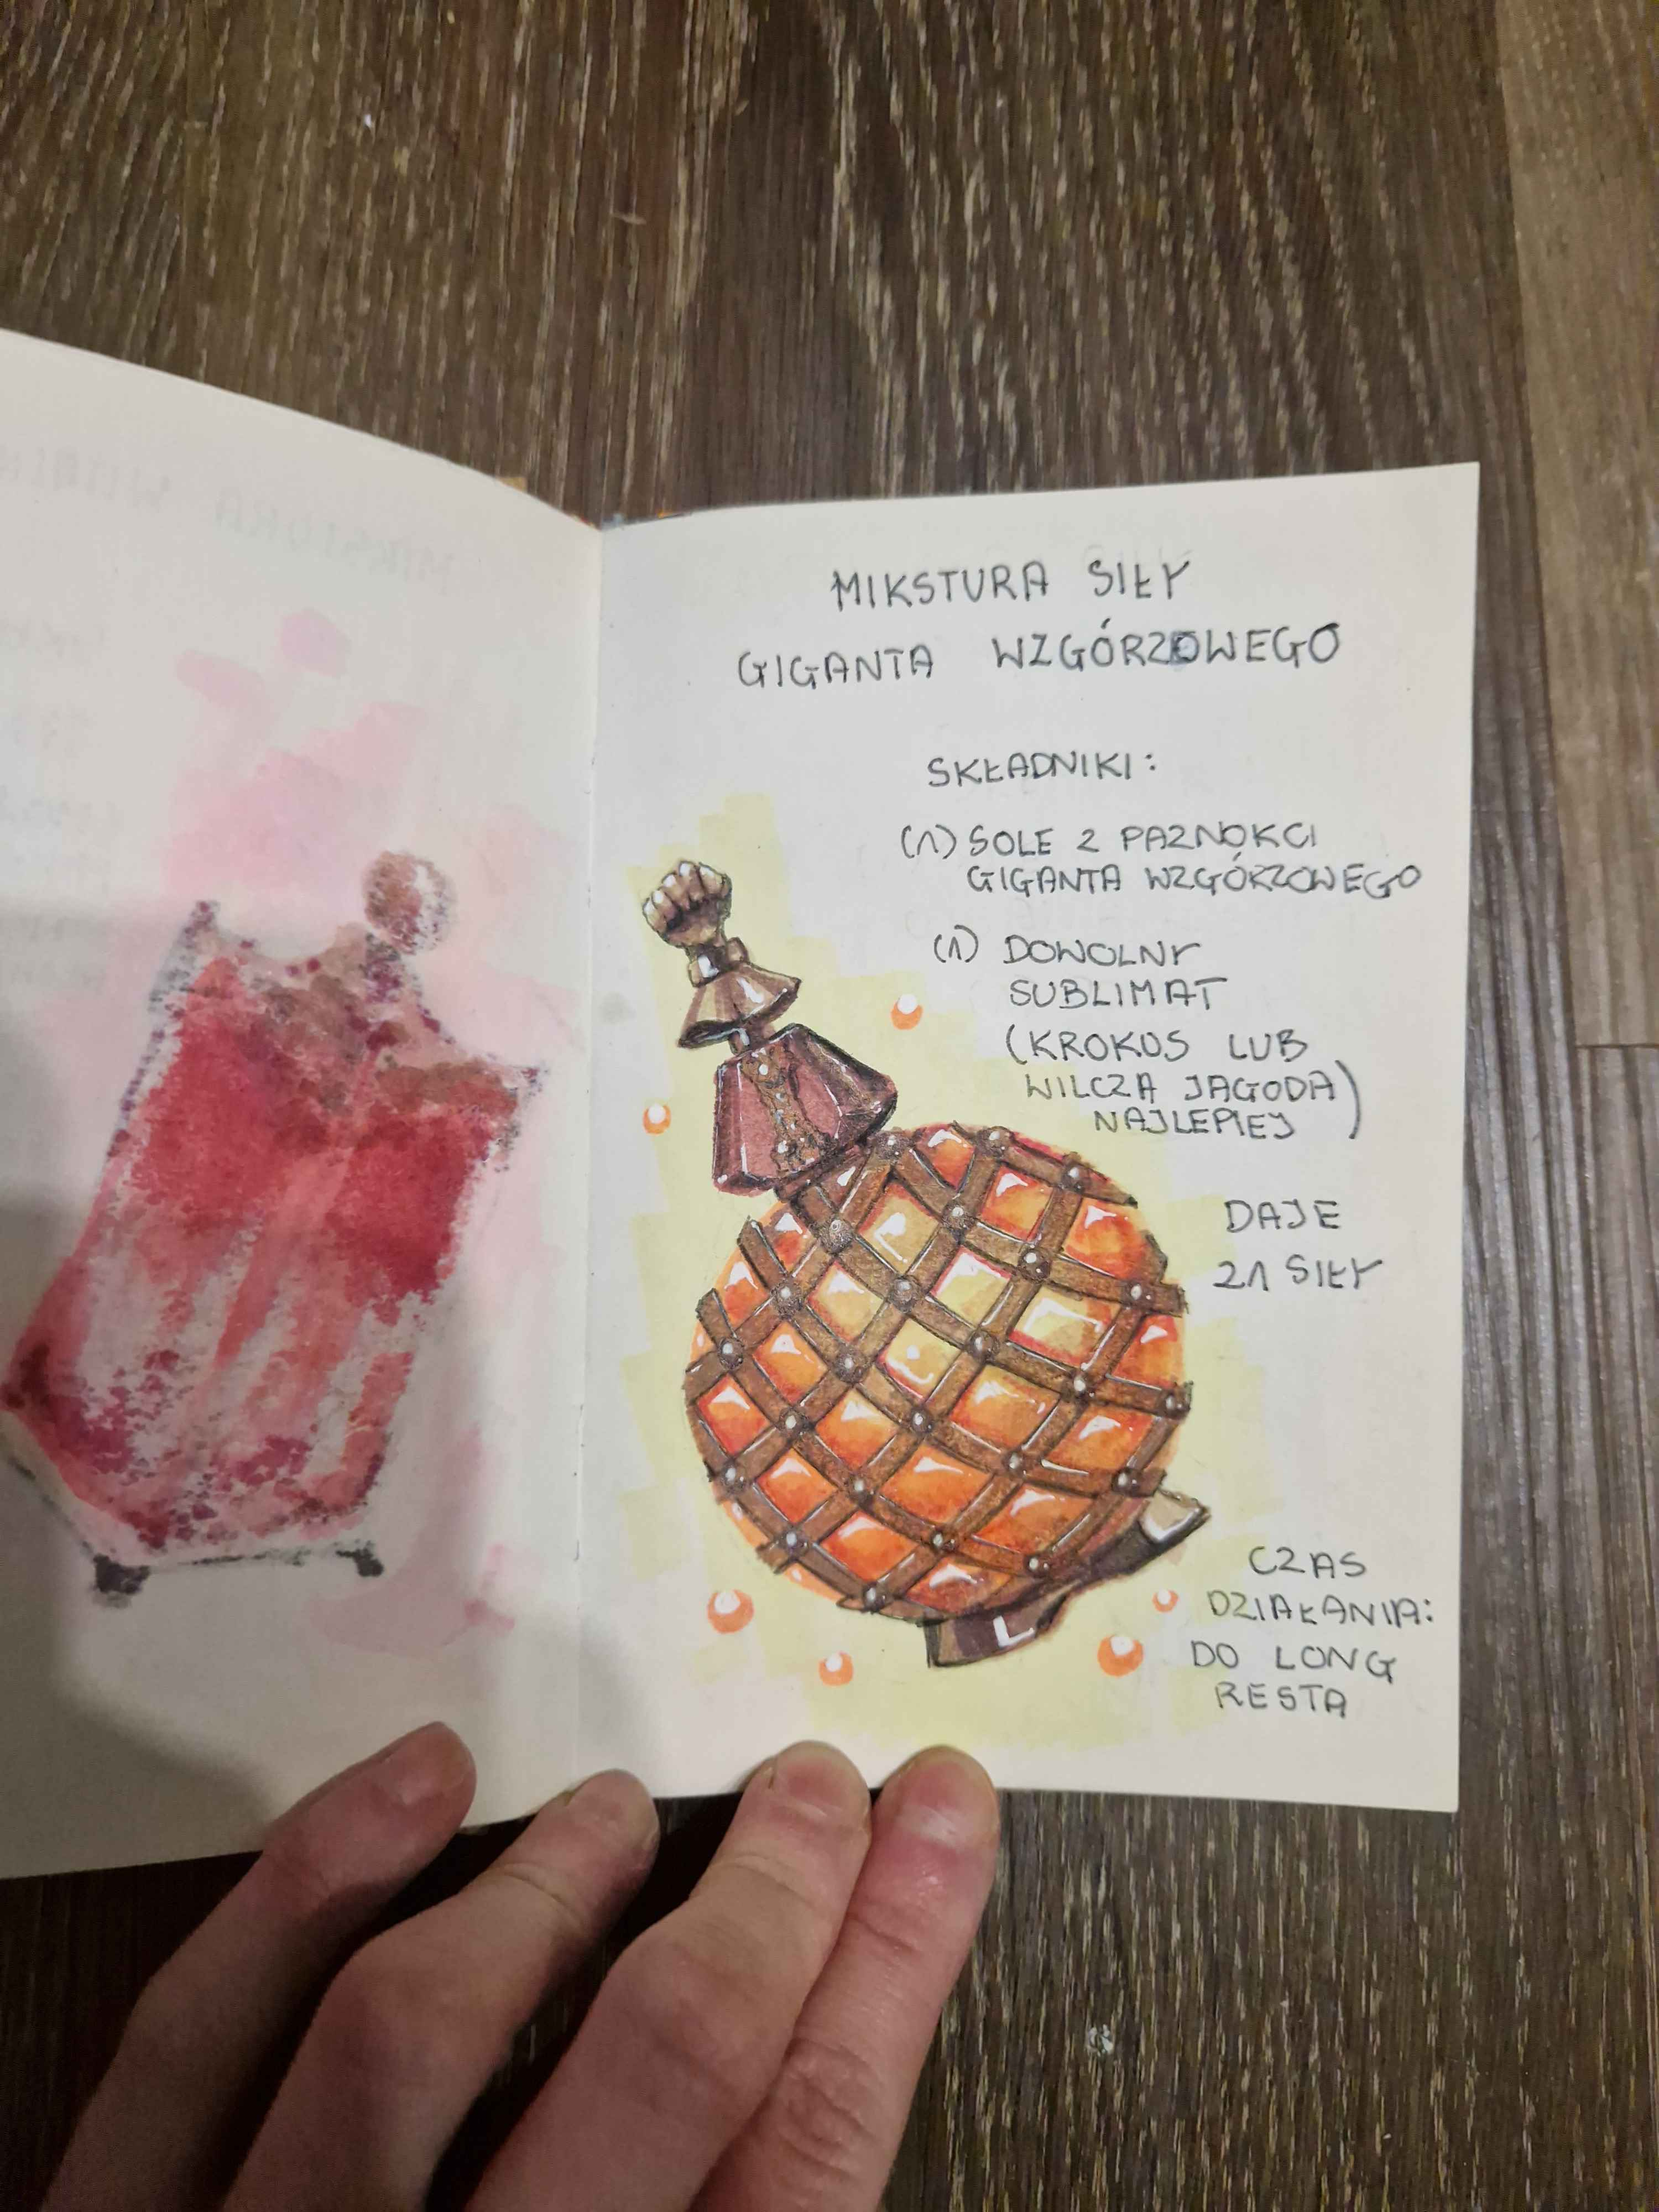 MIKSTURA SIŁY
GIGANTA WZGÓRZOWEGO
SKŁADNIKI:
(1) SOLE Z PAZNOKCI
GIGANTA WZGÓRZOWEGO
(1) DOWOLNY
SUBLIMAT
(KROKUS LUB
WILCZA JAGODA)
NAJLEPIEJ
DAJE
21 SIŁY
CZAS
DZIAŁANIA:
DO LONG
RESTA